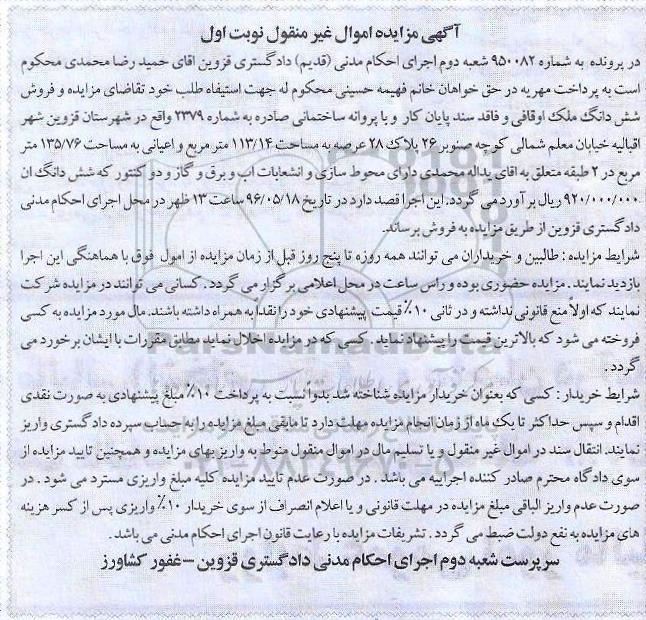 آگهی مزایده اموال غیر منقول نوبت اول
در پرونده به شماره ۹۵۰۰۸۲ شعبه دوم اجرای احکام مدنی (قدیم) دادگستری قزوین اقای حمید رضا محمدی محکوم
است به پرداخت مهریه در حق خواهان خانم فهیمه حسینی محکوم له جهت استیفاء طلب خود تقاضای مزایده و فروش
شش دانگ ملک اوقافی و فاقد سند پایان کار و با پروانه ساختمانی صادره به شماره ۲۳۷۹ واقع در شهرستان قزوین شهر
اقبالیه خیابان معلم شمالی کوچه صنوبر ۲۶ پلاک ۲۸ عرصه به مساحت ۱۱۳/۱۴ متر مربع و اعیانی به مساحت ۱۳۵/۷۶ متر
مربع در ۲ طبقه متعلق به اقای یداله محمدی دارای محوط سازی و انشعابات اب و برق و گاز و دو کنتور که شش دانگ ان
۹۲۰/۰۰۰/۰۰۰ ریال بر آورد می گردد. این اجرا قصد دارد در تاریخ ۹۶/۰۵/۱۸ ساعت ۱۳ ظهر در محل اجرای احکام مدنی
دادگستری قزوین از طریق مزایده به فروش برساند.
شرایط مزایده : طالبین و خریداران می توانند همه روزه تا پنج روز قبل از زمان مزایده از امول فوق با هماهنگی این اجرا
بازدید نمایند . مزایده حضوری بوده و راس ساعت در محل اعلامی برگزار می گردد . کسانی می توانند در مزایده شرکت
نمایند که اولاً منع قانونی نداشته و در ثانی ۱۰٪ قیمت پیشنهادی خود را نقدا به همراه داشته باشند. مال مورد مزایده به کسی
فروخته می شود که بالاترین قیمت را پیشنهاد نماید . کسی که در مزایده اخلال نماید مطابق مقررات با ایشان برخورد می
گردد .
شرایط خریدار : کسی که بعنوان خریدار مزایده شناخته شد بدوا نسبت به پرداخت ۱۰٪ مبلغ پیشنهادی به صورت نقدی
اقدام و سپس حداکثر تا یک ماه از زمان انجام مزایده مهلت دارد تا مابقی مبلغ مزایده را به حساب سپرده دادگستری واریز
نمایند. انتقال سند در اموال غیر منقول و یا تسلیم مال در اموال منقول منوط به واریز بهای مزایده و همچنین تایید مزایده از
سوی دادگاه محترم صادر کننده اجراییه می باشد . در صورت عدم تایید مزایده کلیه مبلغ واریزی مسترد می شود . در
صورت عدم واریز الباقی مبلغ مزایده در مهلت قانونی و یا اعلام انصراف از سوی خریدار ۱۰٪ واریزی پس از کسر هزینه
های مزایده به نفع دولت ضبط می گردد . تشریفات مزایده با رعایت قانون اجرای احکام مدنی می باشد .
سرپرست شعبه دوم اجرای احکام مدنی دادگستری قزوین – غفور کشاورز
ParsNamadData